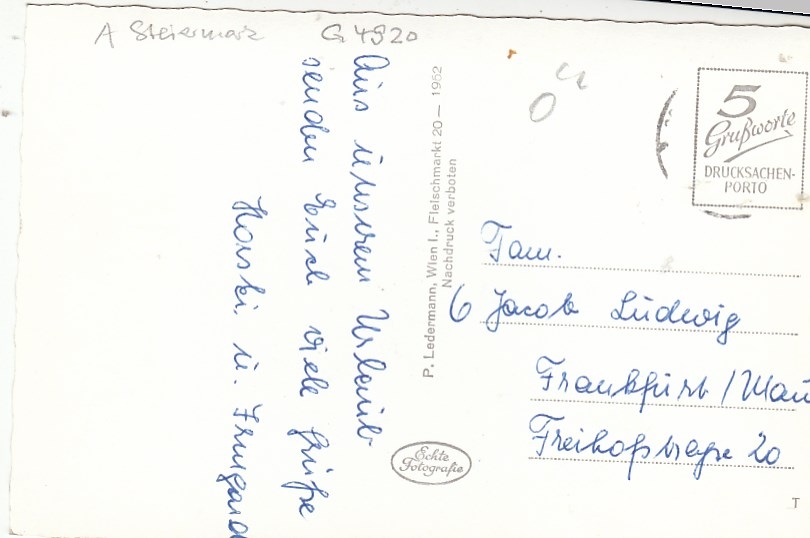 A Steiermark G 4920
Aus unserem Urlaub
senden Euch viele Grüße
Horski u. Irmgard
P. Ledermann, Wien I., Fleischmarkt 20 — 1962
Nachdruck verboten
5
Grußworte
DRUCKSACHEN-
PORTO
Fam.
6 Jacob Ludwig
Frankfurt / Main
Freihofstraße 20
Echte
Fotografie
T